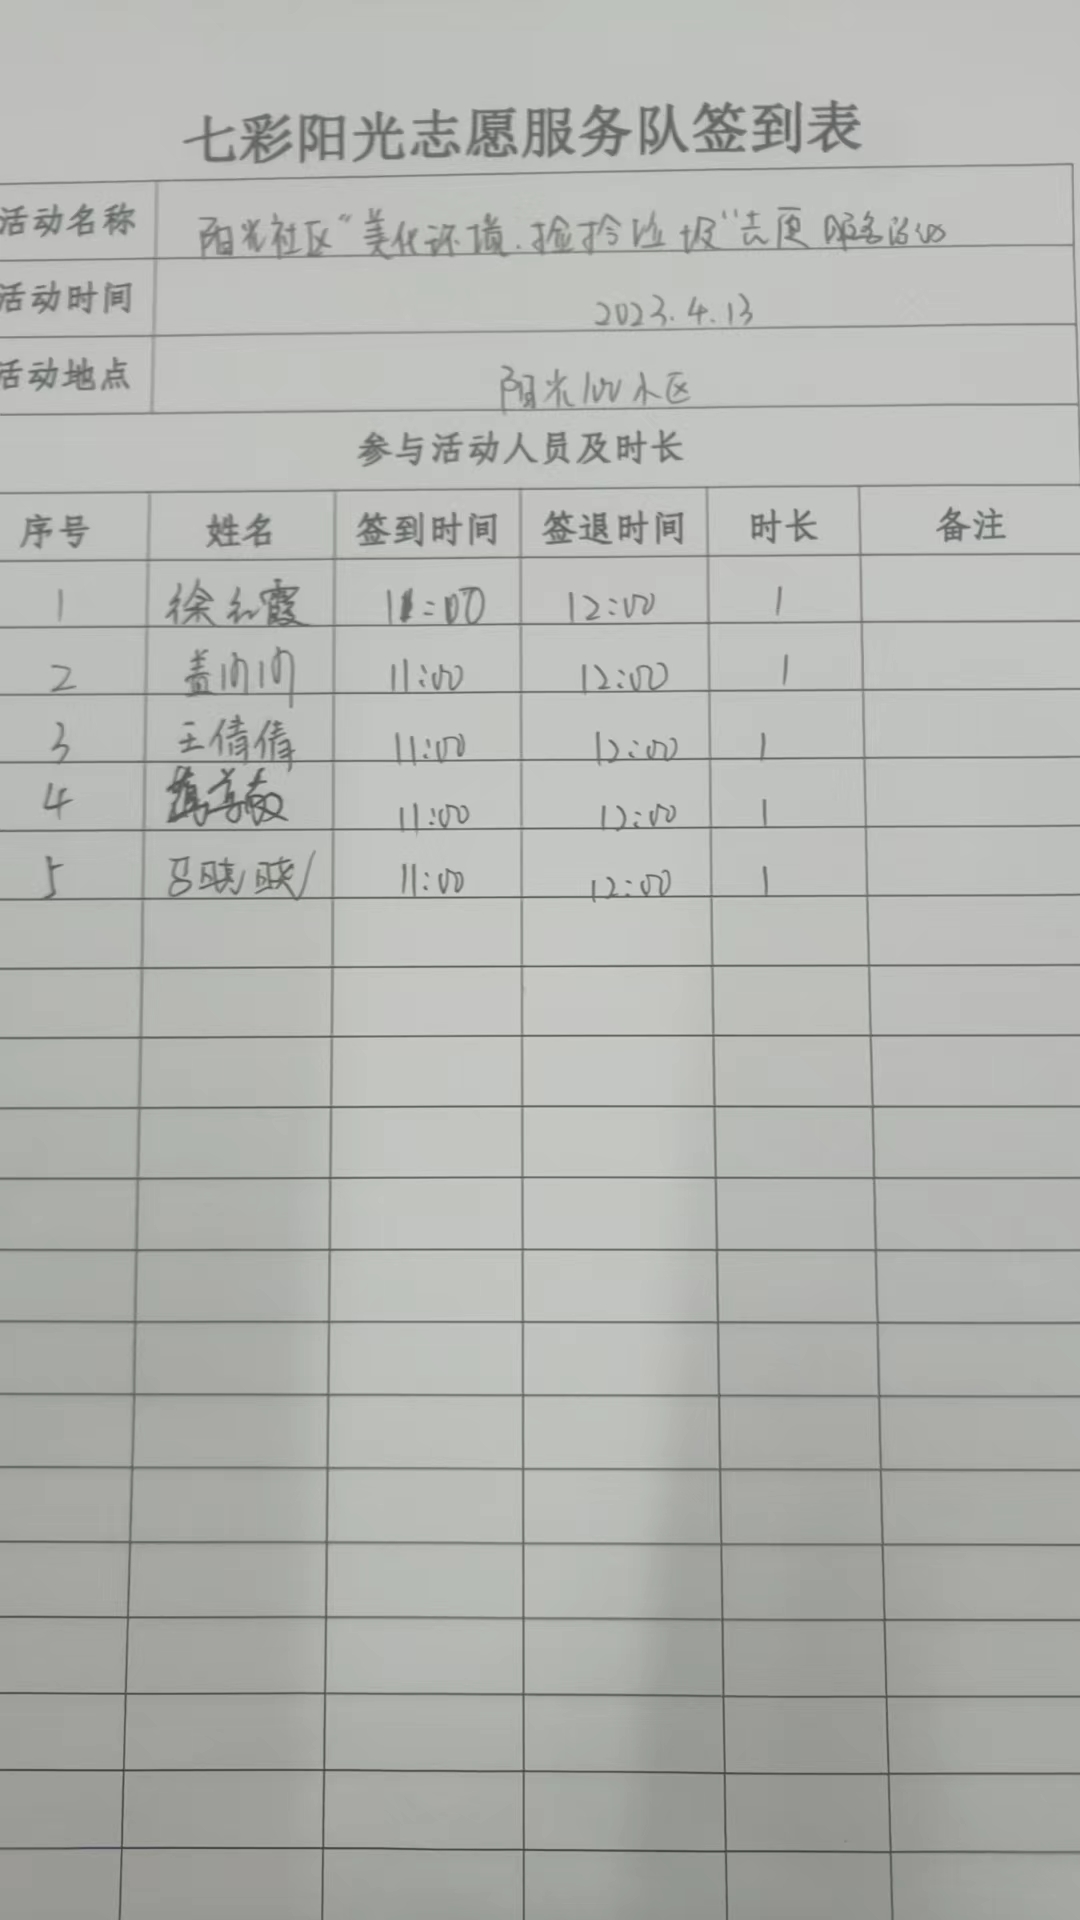 七彩阳光志愿服务队签到表
活动名称 阳光社区“美化环境、捡拾垃圾”志愿服务活动
活动时间 2023.4.13
活动地点 阳光100小区
参与活动人员及时长
序号 姓名 签到时间 签退时间 时长 备注
1 徐红霞 11:00 12:00 1
2 盖 11:00 12:00 1
3 王倩倩 11:00 12:00 1
4 11:00 12:00 1
5 吕映映 11:00 12:00 1